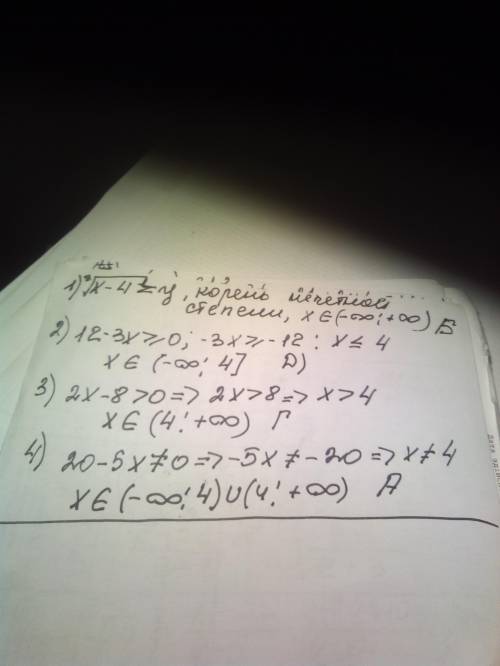 1) ∛x-4 = y, корень нечетной
степени, x∈(-∞; +∞) Б
2) 12-3x≥0; -3x≥-12; x≤4
x∈(-∞; 4] Д)
3) 2x-8>0 => 2x>8 => x>4
x∈(4; +∞) Г
4) 20-5x≠0 => -5x≠-20 => x≠4
x∈(-∞; 4)∪(4; +∞) А